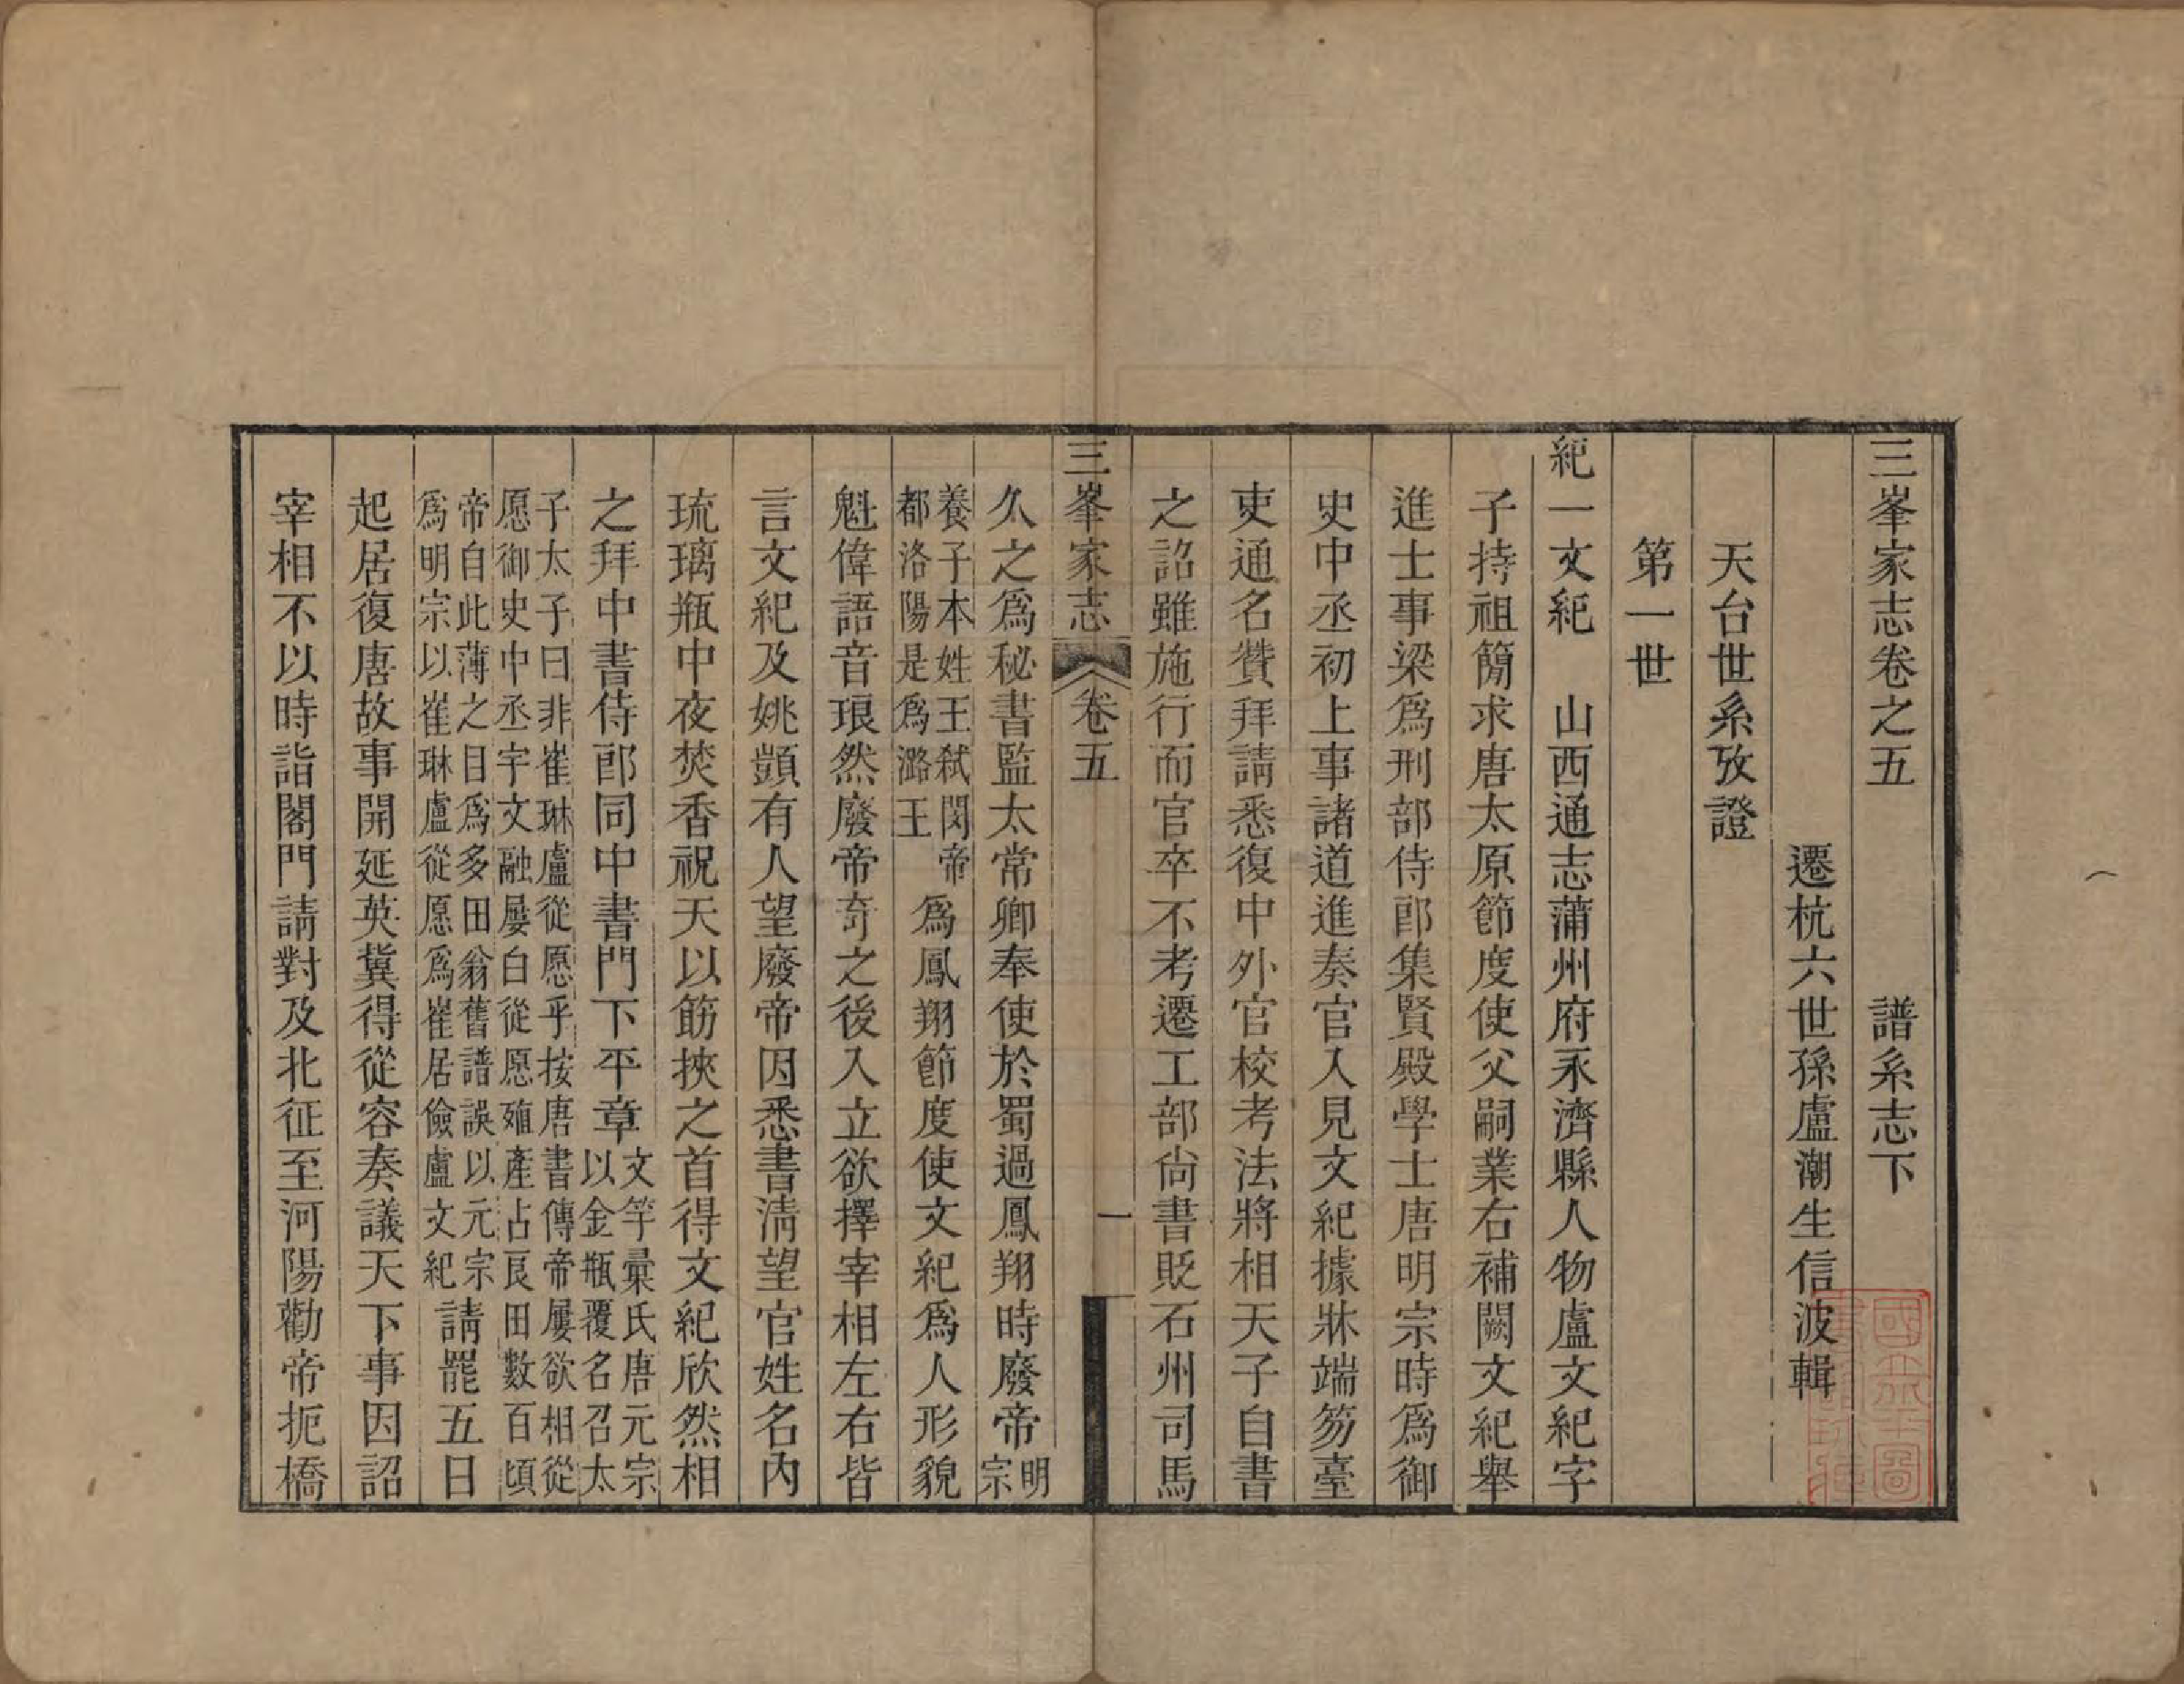 三峯家志卷之五　　　　譜系志下
遷杭六世孫盧潮生信波輯
天台世系攷證
第一世
紀一文紀　山西通志蒲州府永濟縣人物盧文紀字
子持祖簡求唐太原節度使父嗣業右補闕文紀舉
進士事梁爲刑部侍郎集賢殿學士唐明宗時爲御
史中丞初上事諸道進奏官入見文紀據牀端笏臺
吏通名贊拜請悉復中外官校考法將相天子自書
之詔雖施行而官卒不考遷工部尙書貶石州司馬
三峯家志　卷五　一
久之爲秘書監太常卿奉使於蜀過鳳翔時廢帝明宗
養子本姓王弑閔帝都洛陽是爲潞王爲鳳翔節度使文紀爲人形貌
魁偉語音琅然廢帝奇之後入立欲擇宰相左右皆
言文紀及姚顗有人望廢帝因悉書淸望官姓名內
琉璃瓶中夜焚香祝天以筯挾之首得文紀欣然相
之拜中書侍郎同中書門下平章文竿彙氏唐元宗以金瓶覆名召太
子太子曰非崔琳盧從愿乎按唐書傳帝屢欲相從愿御史中丞宇文融屢白從愿殖產占良田數百頃
帝自此薄之目爲多田翁舊譜誤以元宗爲明宗以崔琳盧從愿爲崔居儉盧文紀請罷五日
起居復唐故事開延英冀得從容奏議天下事因詔
宰相不以時詣閣門請對及北征至河陽勸帝扼橋